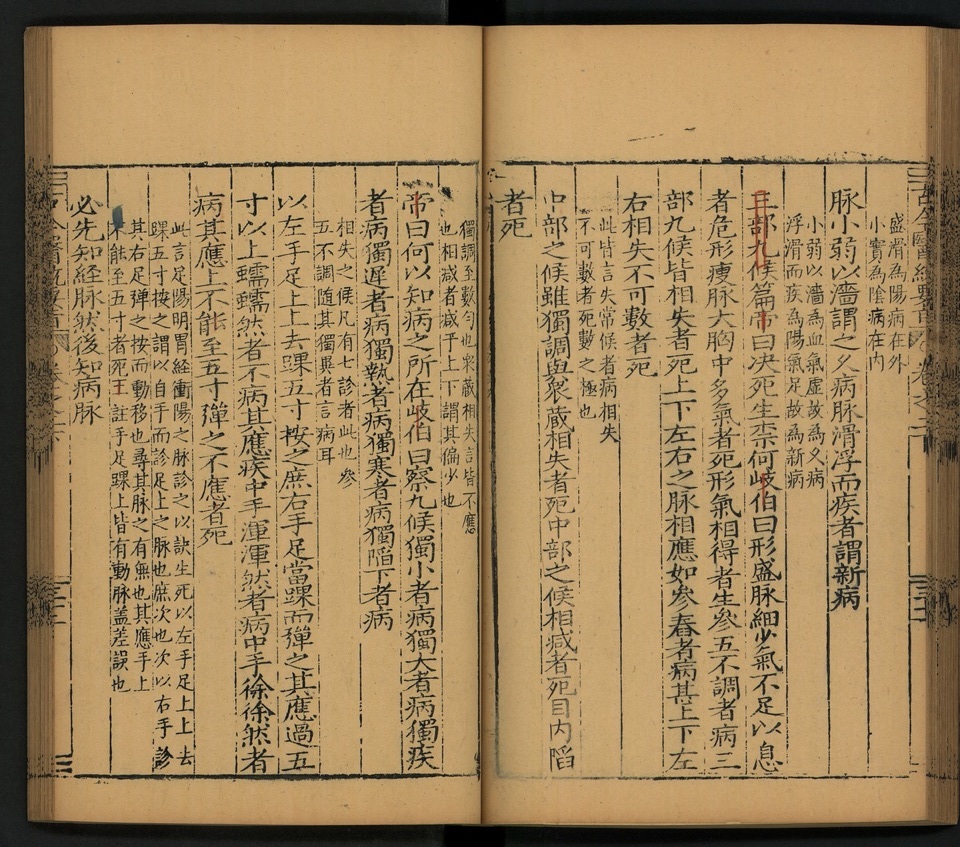 盛滑為陽病在外
小實為陰病在内
脉小弱以濇謂之久病脉滑浮而疾者謂新病
小弱以濇為血氣虚故為久病
浮滑而疾為陽氣足故為新病
三部九候篇帝曰决死生柰何岐伯曰形盛脉細少氣不足以息
者危形瘦脉大胸中多氣者死形氣相得者生參五不調者病三
部九候皆相失者死上下左右之脉相應如參舂者病甚上下左
右相失不可數者死
此皆言失常候者病相失
不可數者死數之極也
中部之候雖獨調與衆藏相失者死中部之候相减者死目内陷
者死
獨調至數勻也衆藏相失言皆不應
也相减者减于上下謂其偏少也
帝曰何以知病之所在岐伯曰察九候獨小者病獨大者病獨疾
者病獨遲者病獨熱者病獨寒者病獨陷下者病
相失之候凡有七診者此也參
五不調隨其獨異者言病耳
以左手足上上去踝五寸按之庶右手足當踝而彈之其應過五
寸以上蠕蠕然者不病其應疾中手渾渾然者病中手徐徐然者
病其應上不能至五寸彈之不應者死
此言足陽明胃經衝陽之脉診之以訣生死以左手足上上去
踝五寸按之謂以自手而診足上之脉也庶次也次以右手診
其右足彈之按而動移也尋其脉之有無也其應手上
不能至五寸者死王註手足踝上皆有動脉盖差誤也
必先知經脉然後知病脉